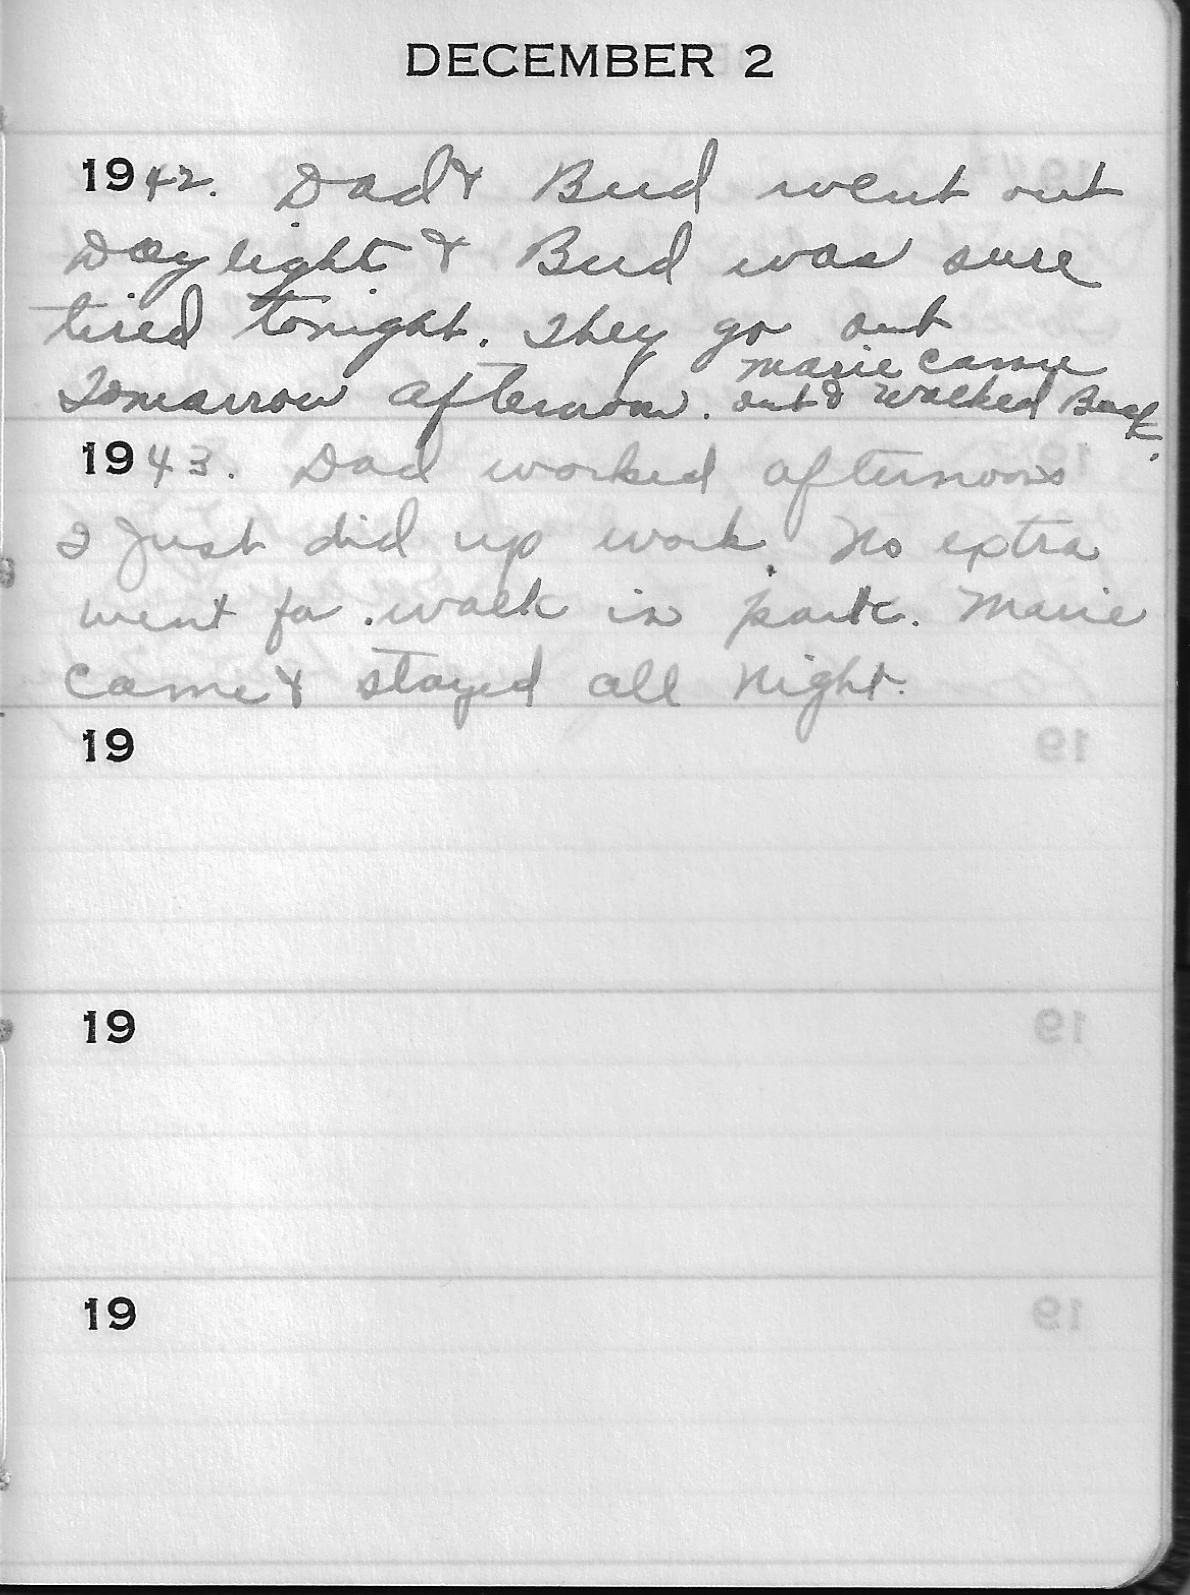 DECEMBER 2
1942. Dad & Bud went out
Daylight & Bud was sure
tired tonight. They go out
Tomarrow afternoon. Marie came
out & walked Back.
1943. Dad worked afternoons
I Just did up work. No extra
went for walk in park. Marie
came & stayed all night.
19
19
19